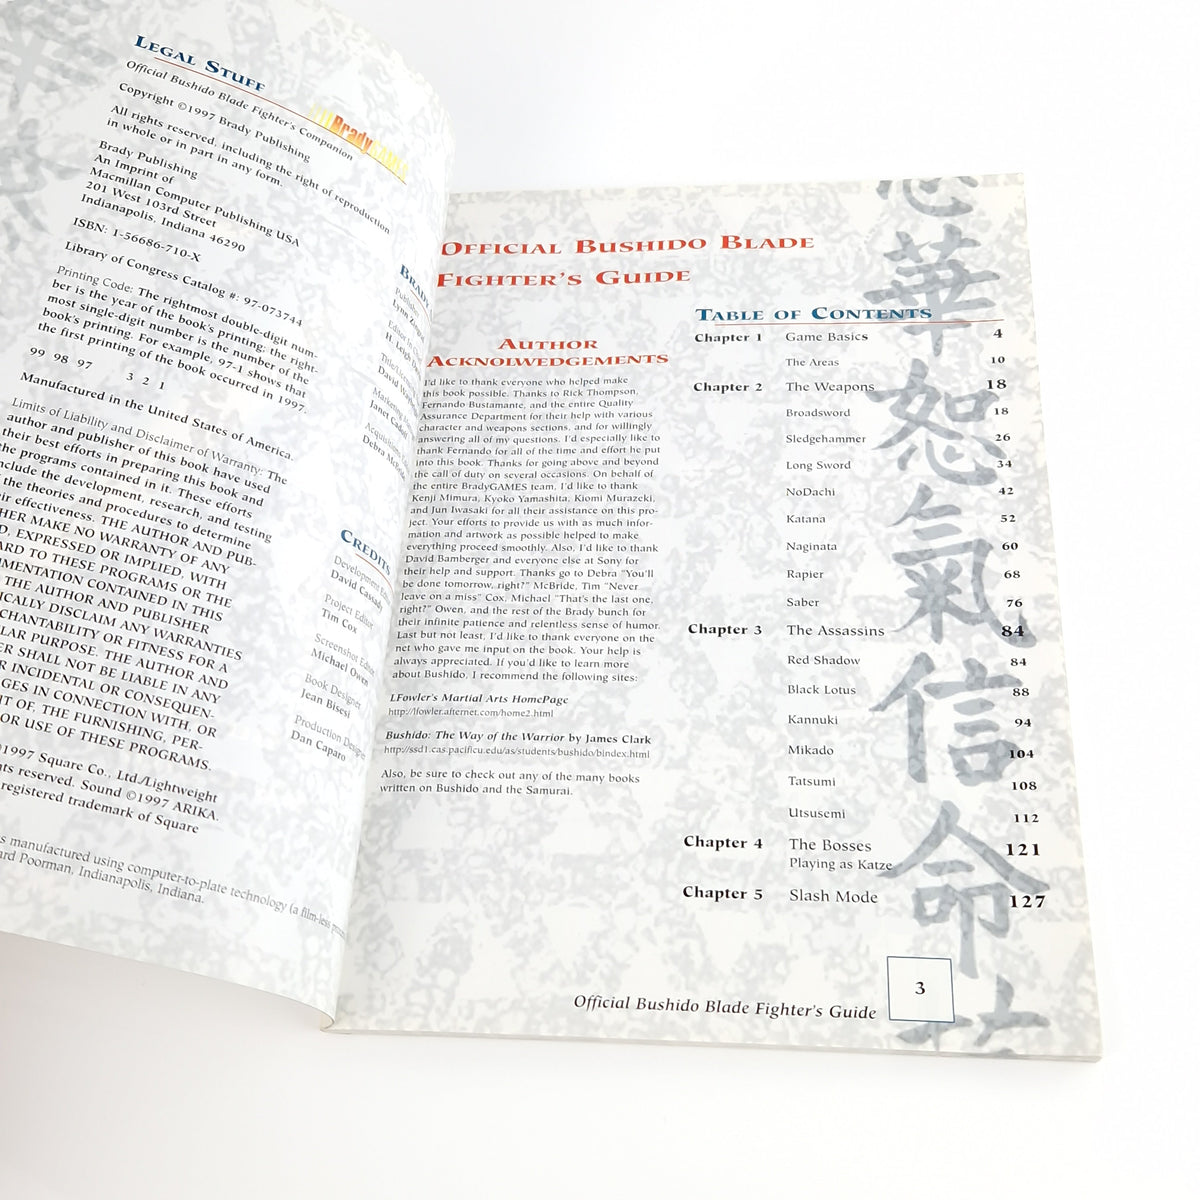 LEGAL STUFF
Official Bushido Blade Fighter's Companion
Copyright ©1997 Brady Publishing
All rights reserved, including the right of reproduction
in whole or in part in any form.
Brady Publishing
An Imprint of
Macmillan Computer Publishing USA
201 West 103rd Street
Indianapolis, Indiana 46290
ISBN: 1-56686-710-X
Library of Congress Catalog #: 97-073744
Printing Code: The rightmost double-digit num-
ber is the year of the book's printing; the right-
most single-digit number is the number of the
book's printing. For example, 97-1 shows that
the first printing of the book occurred in 1997.
99 98 97 3 2 1
Manufactured in the United States of America.
Limits of Liability and Disclaimer of Warranty: The
author and publisher of this book have used
their best efforts in preparing this book and
the programs contained in it. These efforts
include the development, research, and testing
the theories and procedures to determine
effectiveness. THE AUTHOR AND PUB-
MAKE NO WARRANTY OF ANY
EXPRESSED OR IMPLIED, WITH
TO THESE PROGRAMS OR THE
CONTAINED IN THIS
THE AUTHOR AND PUBLISHER
DISCLAIM ANY WARRANTIES
OR FITNESS FOR A
PURPOSE. THE AUTHOR AND
SHALL NOT BE LIABLE IN ANY
INCIDENTAL OR CONSEQUEN-
IN CONNECTION WITH, OR
OF, THE FURNISHING, PER-
OR USE OF THESE PROGRAMS.
©1997 Square Co., Ltd./Lightweight
rights reserved. Sound ©1997 ARIKA.
registered trademark of Square
manufactured using computer-to-plate technology (a film-less
Poorman, Indianapolis, Indiana.
BradyGAMES
CREDITS
Development Editor
David Cassady
Project Editor
Tim Cox
Screenshot Editor
Michael Owen
Book Designer
Jean Bisesi
Production Designer
Dan Caparo
OFFICIAL BUSHIDO BLADE
FIGHTER'S GUIDE
AUTHOR
ACKNOLWEDGEMENTS
I'd like to thank everyone who helped make
this book possible. Thanks to Rick Thompson,
Fernando Bustamante, and the entire Quality
Assurance Department for their help with various
character and weapons sections, and for willingly
answering all of my questions. I'd especially like to
thank Fernando for all of the time and effort he put
into this book. Thanks for going above and beyond
the call of duty on several occasions. On behalf of
the entire BradyGAMES team, I'd like to thank
Kenji Mimura, Kyoko Yamashita, Kiomi Murazeki,
and Jun Iwasaki for all their assistance on this pro-
ject. Your efforts to provide us with as much infor-
mation and artwork as possible helped to make
everything proceed smoothly. Also, I'd like to thank
David Bamberger and everyone else at Sony for
their help and support. Thanks go to Debra "You'll
be done tomorrow, right?" McBride, Tim "Never
leave on a miss" Cox, Michael "That's the last one,
right?" Owen, and the rest of the Brady bunch for
their infinite patience and relentless sense of humor.
Last but not least, I'd like to thank everyone on the
net who gave me input on the book. Your help is
always appreciated. If you'd like to learn more
about Bushido, I recommend the following sites:
LFowler's Martial Arts HomePage
http://lfowler.afternet.com/home2.html
Bushido: The Way of the Warrior by James Clark
http://ssd1.cas.pacificu.edu/as/students/bushido/bindex.html
Also, be sure to check out any of the many books
written on Bushido and the Samurai.
TABLE OF CONTENTS
Chapter 1 Game Basics 4
The Areas 10
Chapter 2 The Weapons 18
Broadsword 18
Sledgehammer 26
Long Sword 34
NoDachi 42
Katana 52
Naginata 60
Rapier 68
Saber 76
Chapter 3 The Assassins 84
Red Shadow 84
Black Lotus 88
Kannuki 94
Mikado 104
Tatsumi 108
Utsusemi 112
Chapter 4 The Bosses 121
Playing as Katze
Chapter 5 Slash Mode 127
華
恕
氣
信
命
Official Bushido Blade Fighter's Guide 3